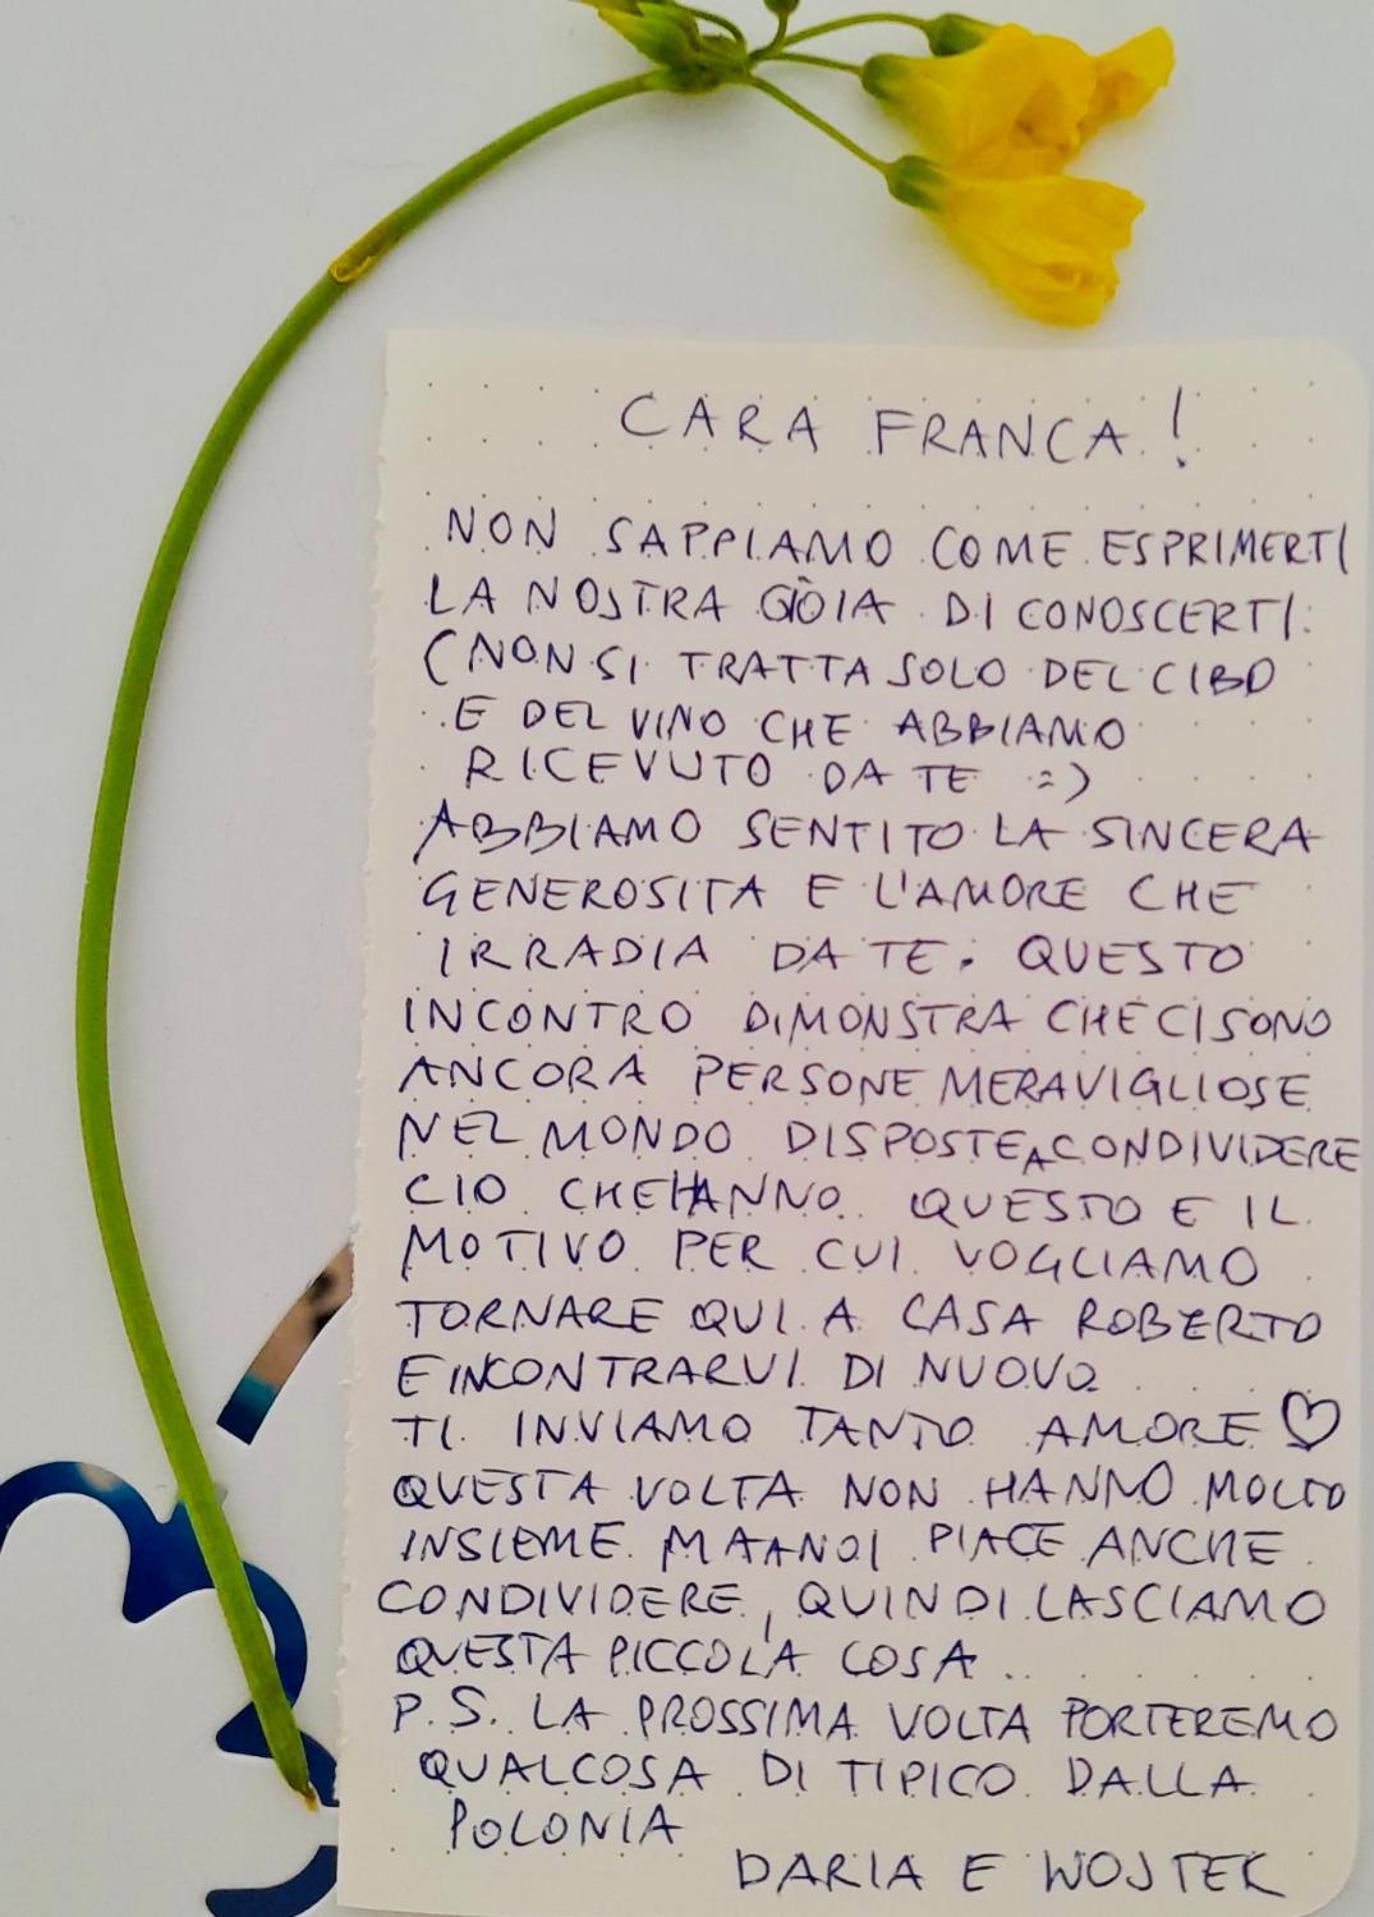 CARA FRANCA!
NON SAPPIAMO COME ESPRIMERTI
LA NOSTRA GIOIA DI CONOSCERTI.
(NON SI TRATTA SOLO DEL CIBO
E DEL VINO CHE ABBIAMO
RICEVUTO DA TE :)
ABBIAMO SENTITO LA SINCERA
GENEROSITA E L'AMORE CHE
IRRADIA DA TE. QUESTO
INCONTRO DIMONSTRA CHE CI SONO
ANCORA PERSONE MERAVIGLIOSE
NEL MONDO DISPOSTE A CONDIVIDERE
CIO CHE HANNO. QUESTO E IL
MOTIVO PER CUI VOGLIAMO
TORNARE QUI A CASA ROBERTO
E INCONTRARVI DI NUOVO
TI INVIAMO TANTO AMORE ♡
QUESTA VOLTA NON HANNO MOLTO
INSIEME MA A NOI PIACE ANCHE
CONDIVIDERE, QUINDI LASCIAMO
QUESTA PICCOLA COSA..
P.S. LA PROSSIMA VOLTA PORTEREMO
QUALCOSA DI TIPICO DALLA
POLONIA
DARIA E WOJTEK